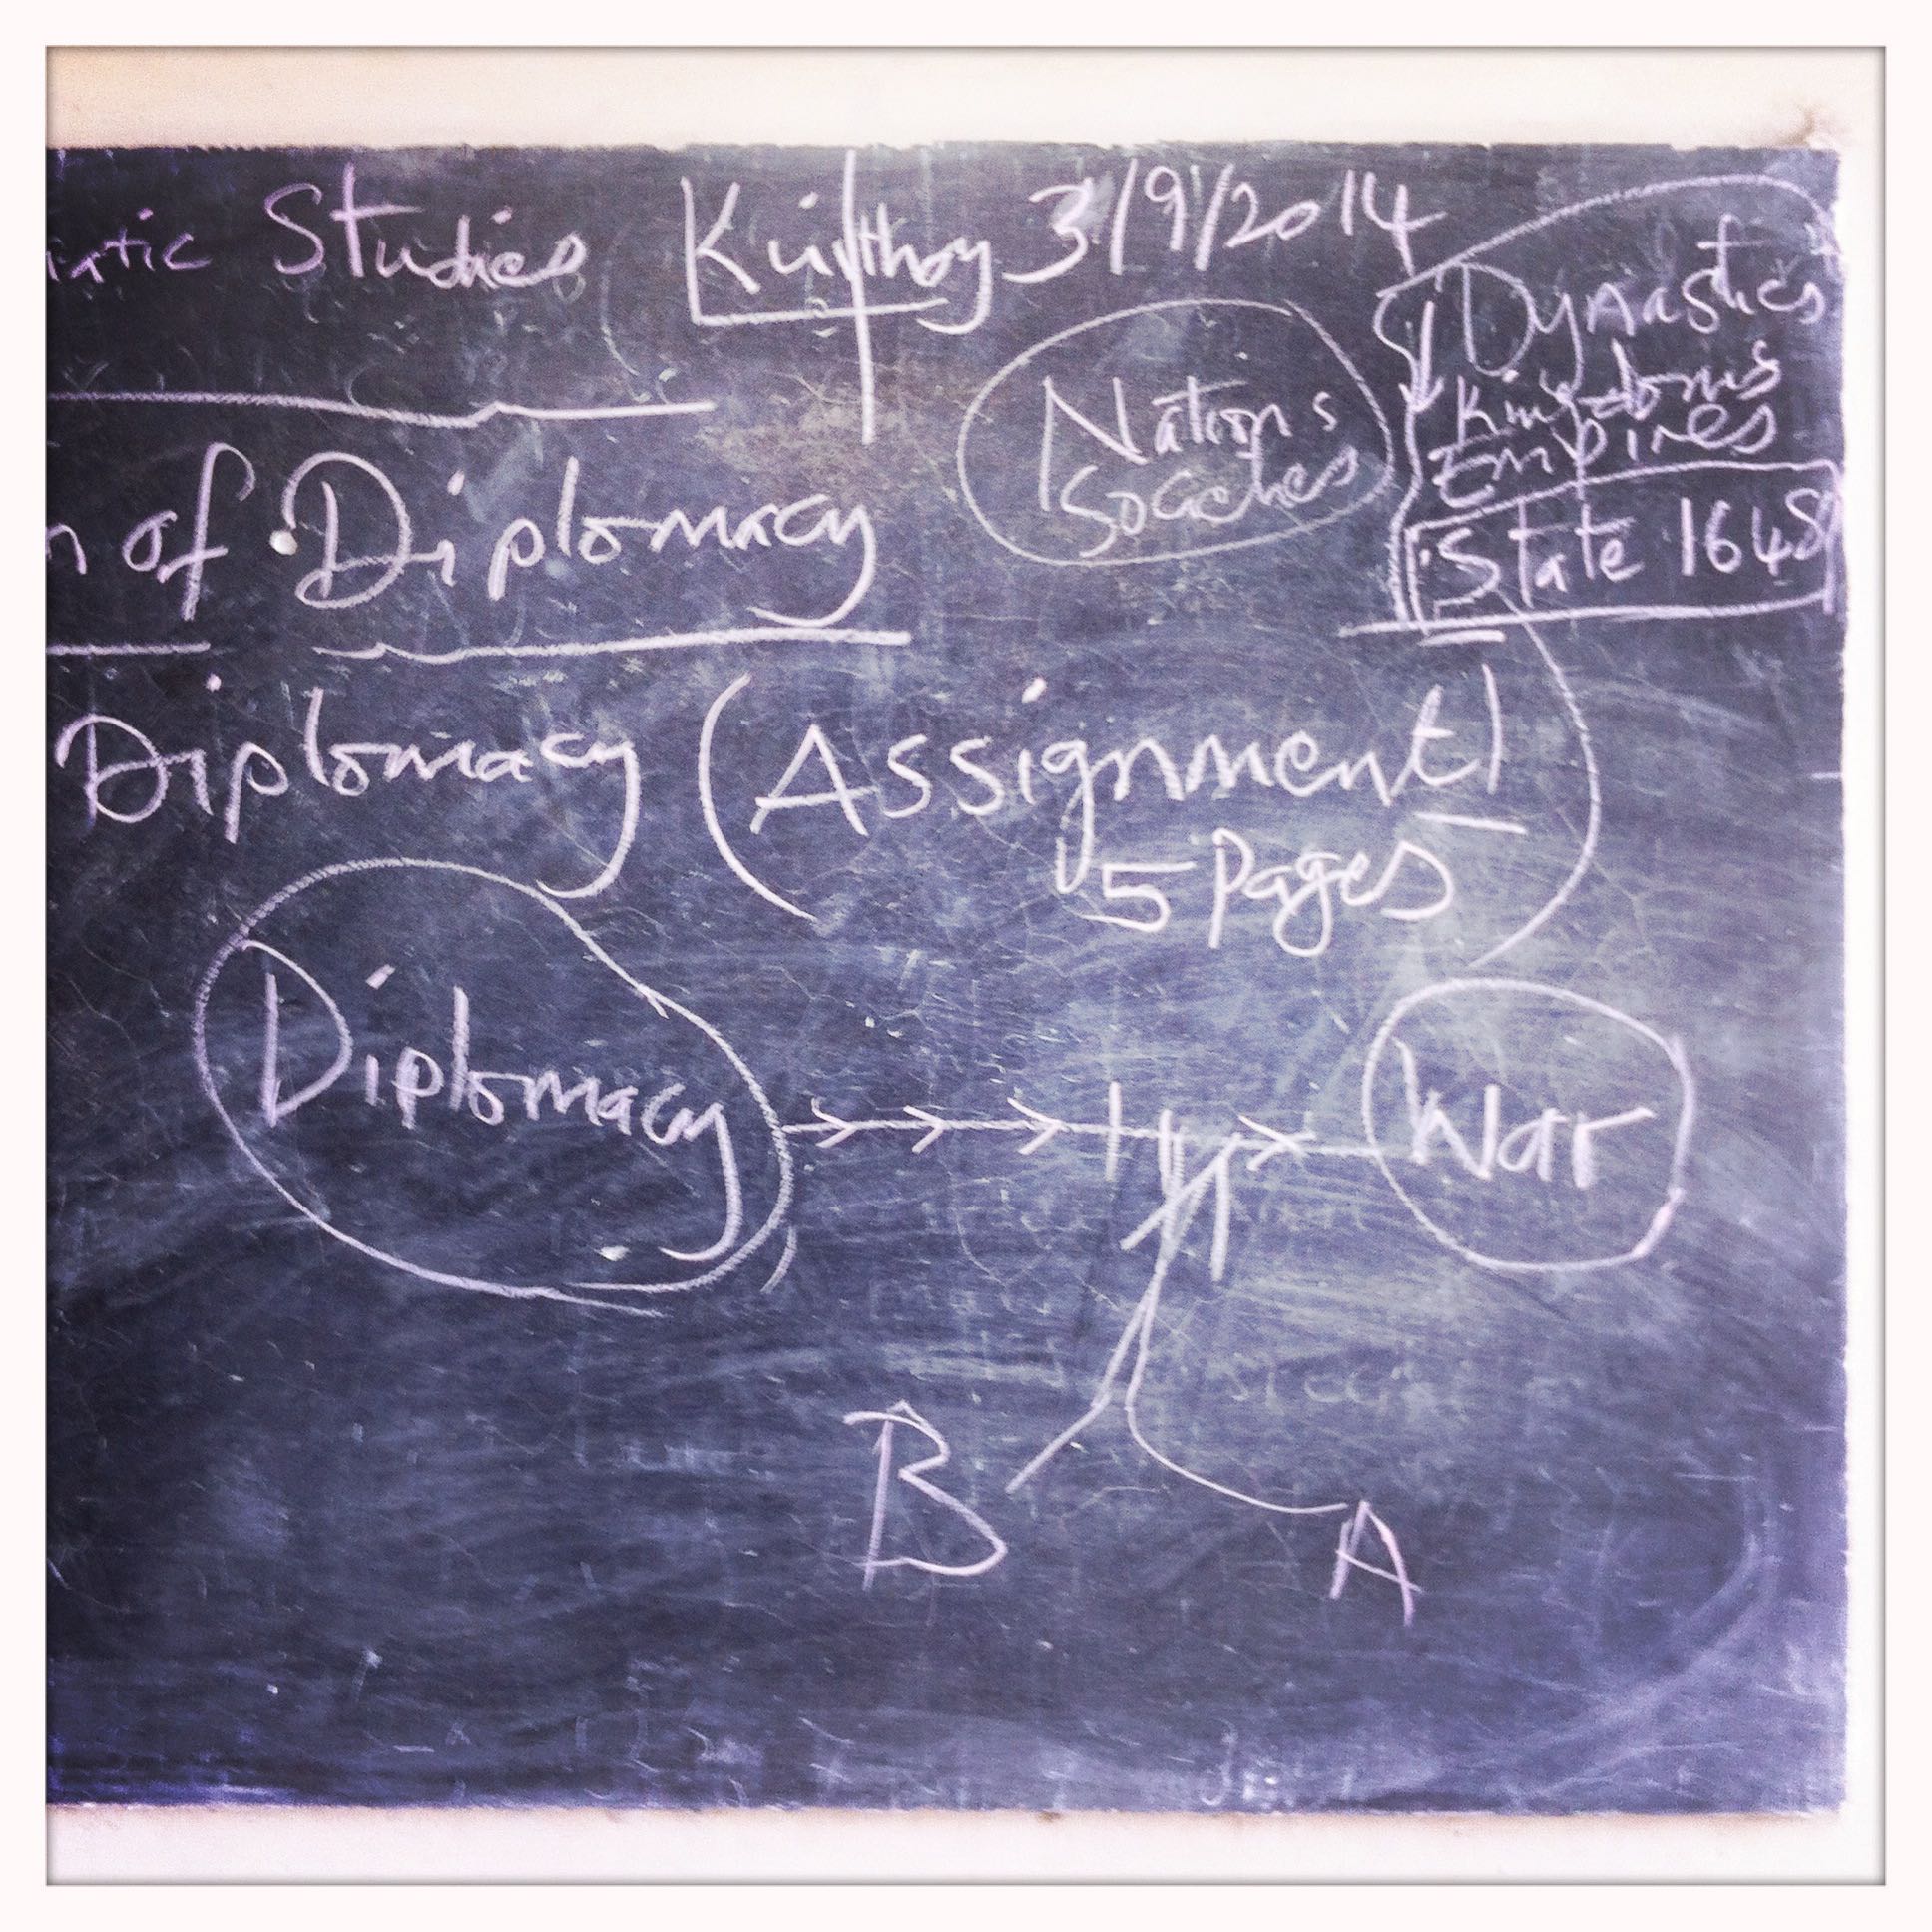 Studies 3/9/2014
Dynasties
Kingdoms
Empires
State 1648
Nations
Societies
of Diplomacy
Diplomacy (Assignment 1
5 Pages
Diplomacy
War
B
A